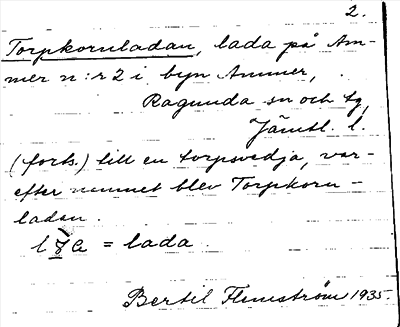 2.
Torpkornladan, lada på Am-
mer n:r 2 i byn Ammer,
Ragunda sn och tg,
Jämtl. l.
(forts.) till en torpsvedja, var-
efter namnet blev Torpkorn-
ladan.
= lada
Bertil Flemström 1935.